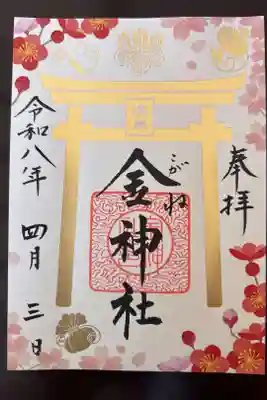 奉拝
こがね
金神社
令和八年 四月 三日